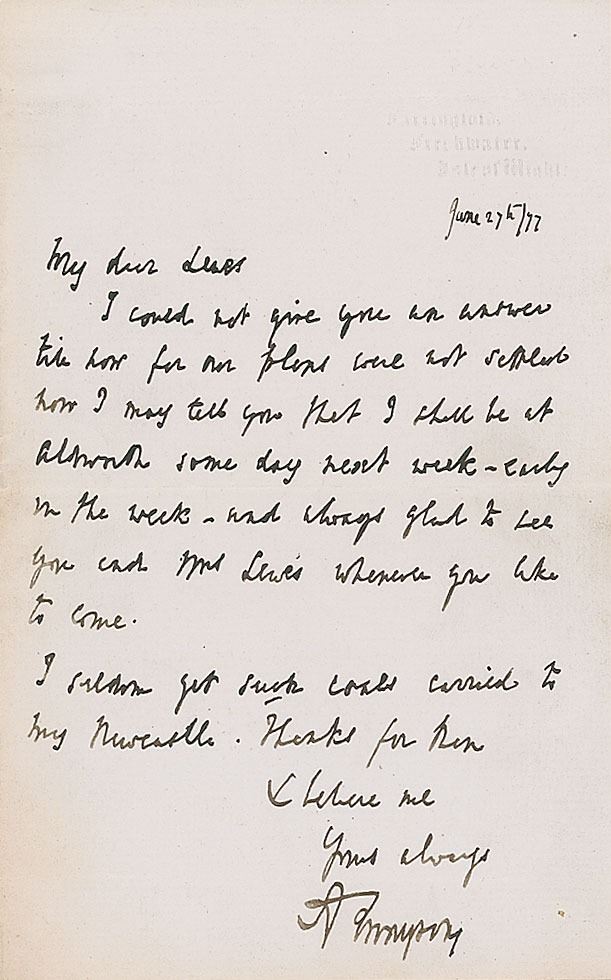 Farringford,
Freshwater,
Isle of Wight.
June 27th/77
My dear Lewes
I could not give you an answer
till now for our plans were not settled
now I may tell you that I shall be at
Aldworth some day next week - early
in the week - and always glad to see
you and Mrs Lewes whenever you like
to come.
I seldom get such coals carried to
my Newcastle. Thanks for them
& believe me
Yours always
A Tennyson